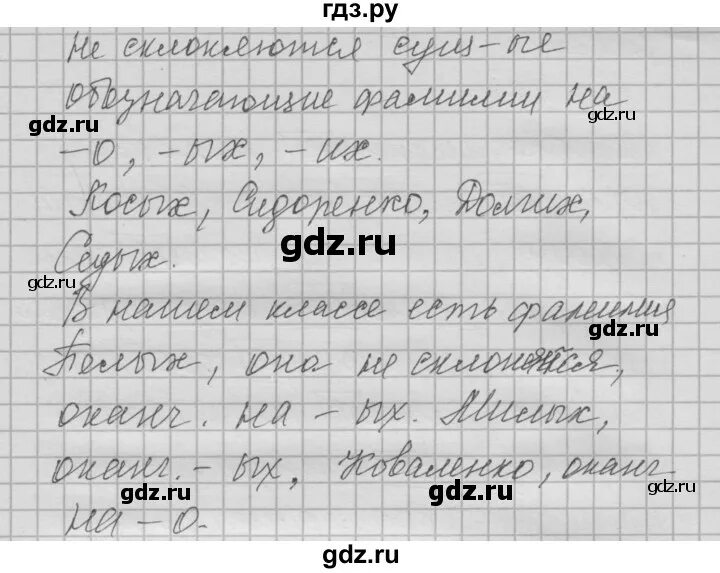 гдз.ру
Не склоняются сущ-ые
обозначающие фамилии на
gdz.ru gdz.ru
-о, -ых, -их.
Косых, Сидоренко, Долгих,
gdz.ru
Седых.
gdz.ru gdz.ru
В нашем классе есть фамилия
gdz.ru
Белых, она не склоняется,
оканч. на -ых. Милых,
оканч. -ых, Коваленко, оканч
gdz.ru gdz.ru gdz.ru
на -о.
gdz.ru